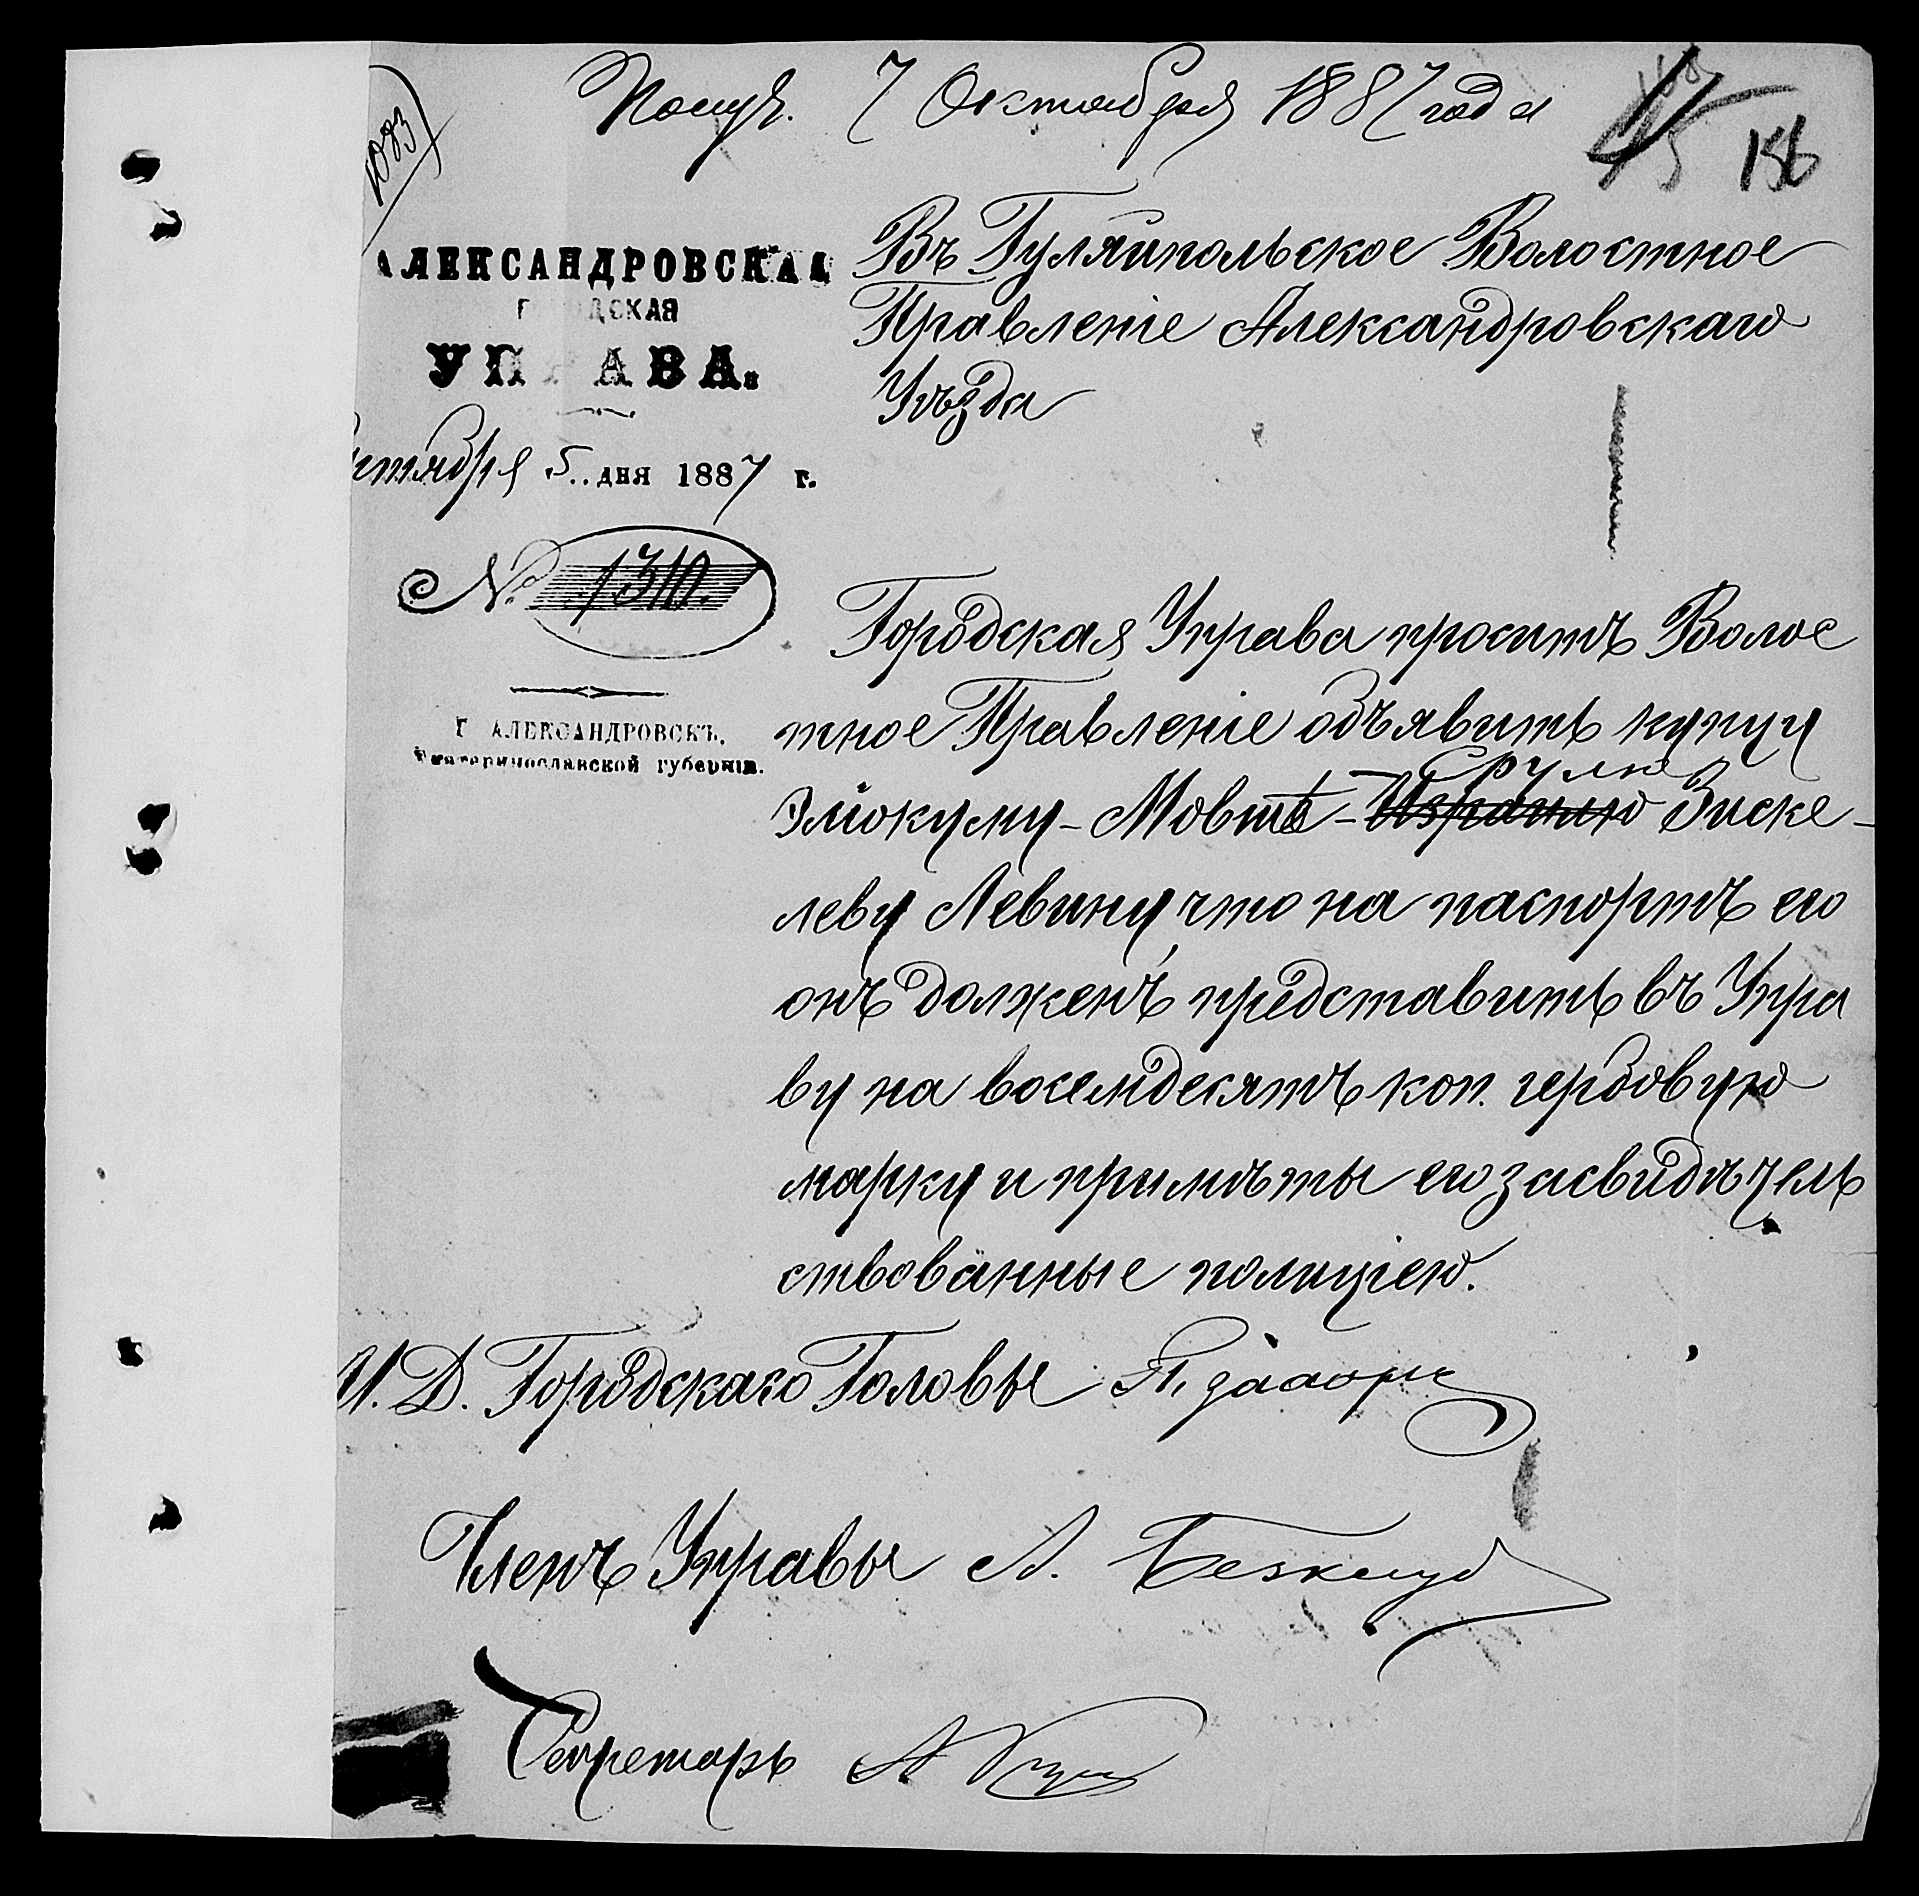 Получ. 7 Октября 1887 года
1083
186
АЛЕКСАНДРОВСКАЯ
ГОРОДСКАЯ
УПРАВА.
Октября 5 дня 1887 г.
№ 1310.
Г. АЛЕКСАНДРОВСКЪ,
Екатеринославской губерніи.
Въ Гуляйпольское Волостное
Правленіе Александровскаго
Уѣзда
Городская Управа проситъ Волос
тное Правленіе объявить купцу
Срулю
Эліокуму-Мовшѣ-Израилю Зиске-
леву Левину что на паспортъ его
онъ долженъ представить въ Упра
ву на восемдесятъ коп. гербовую
марку и примѣты его засвидѣтель
ствованные полиціею.
И.Д. Городскаго Головы
Членъ Управы А.
Секретарь А